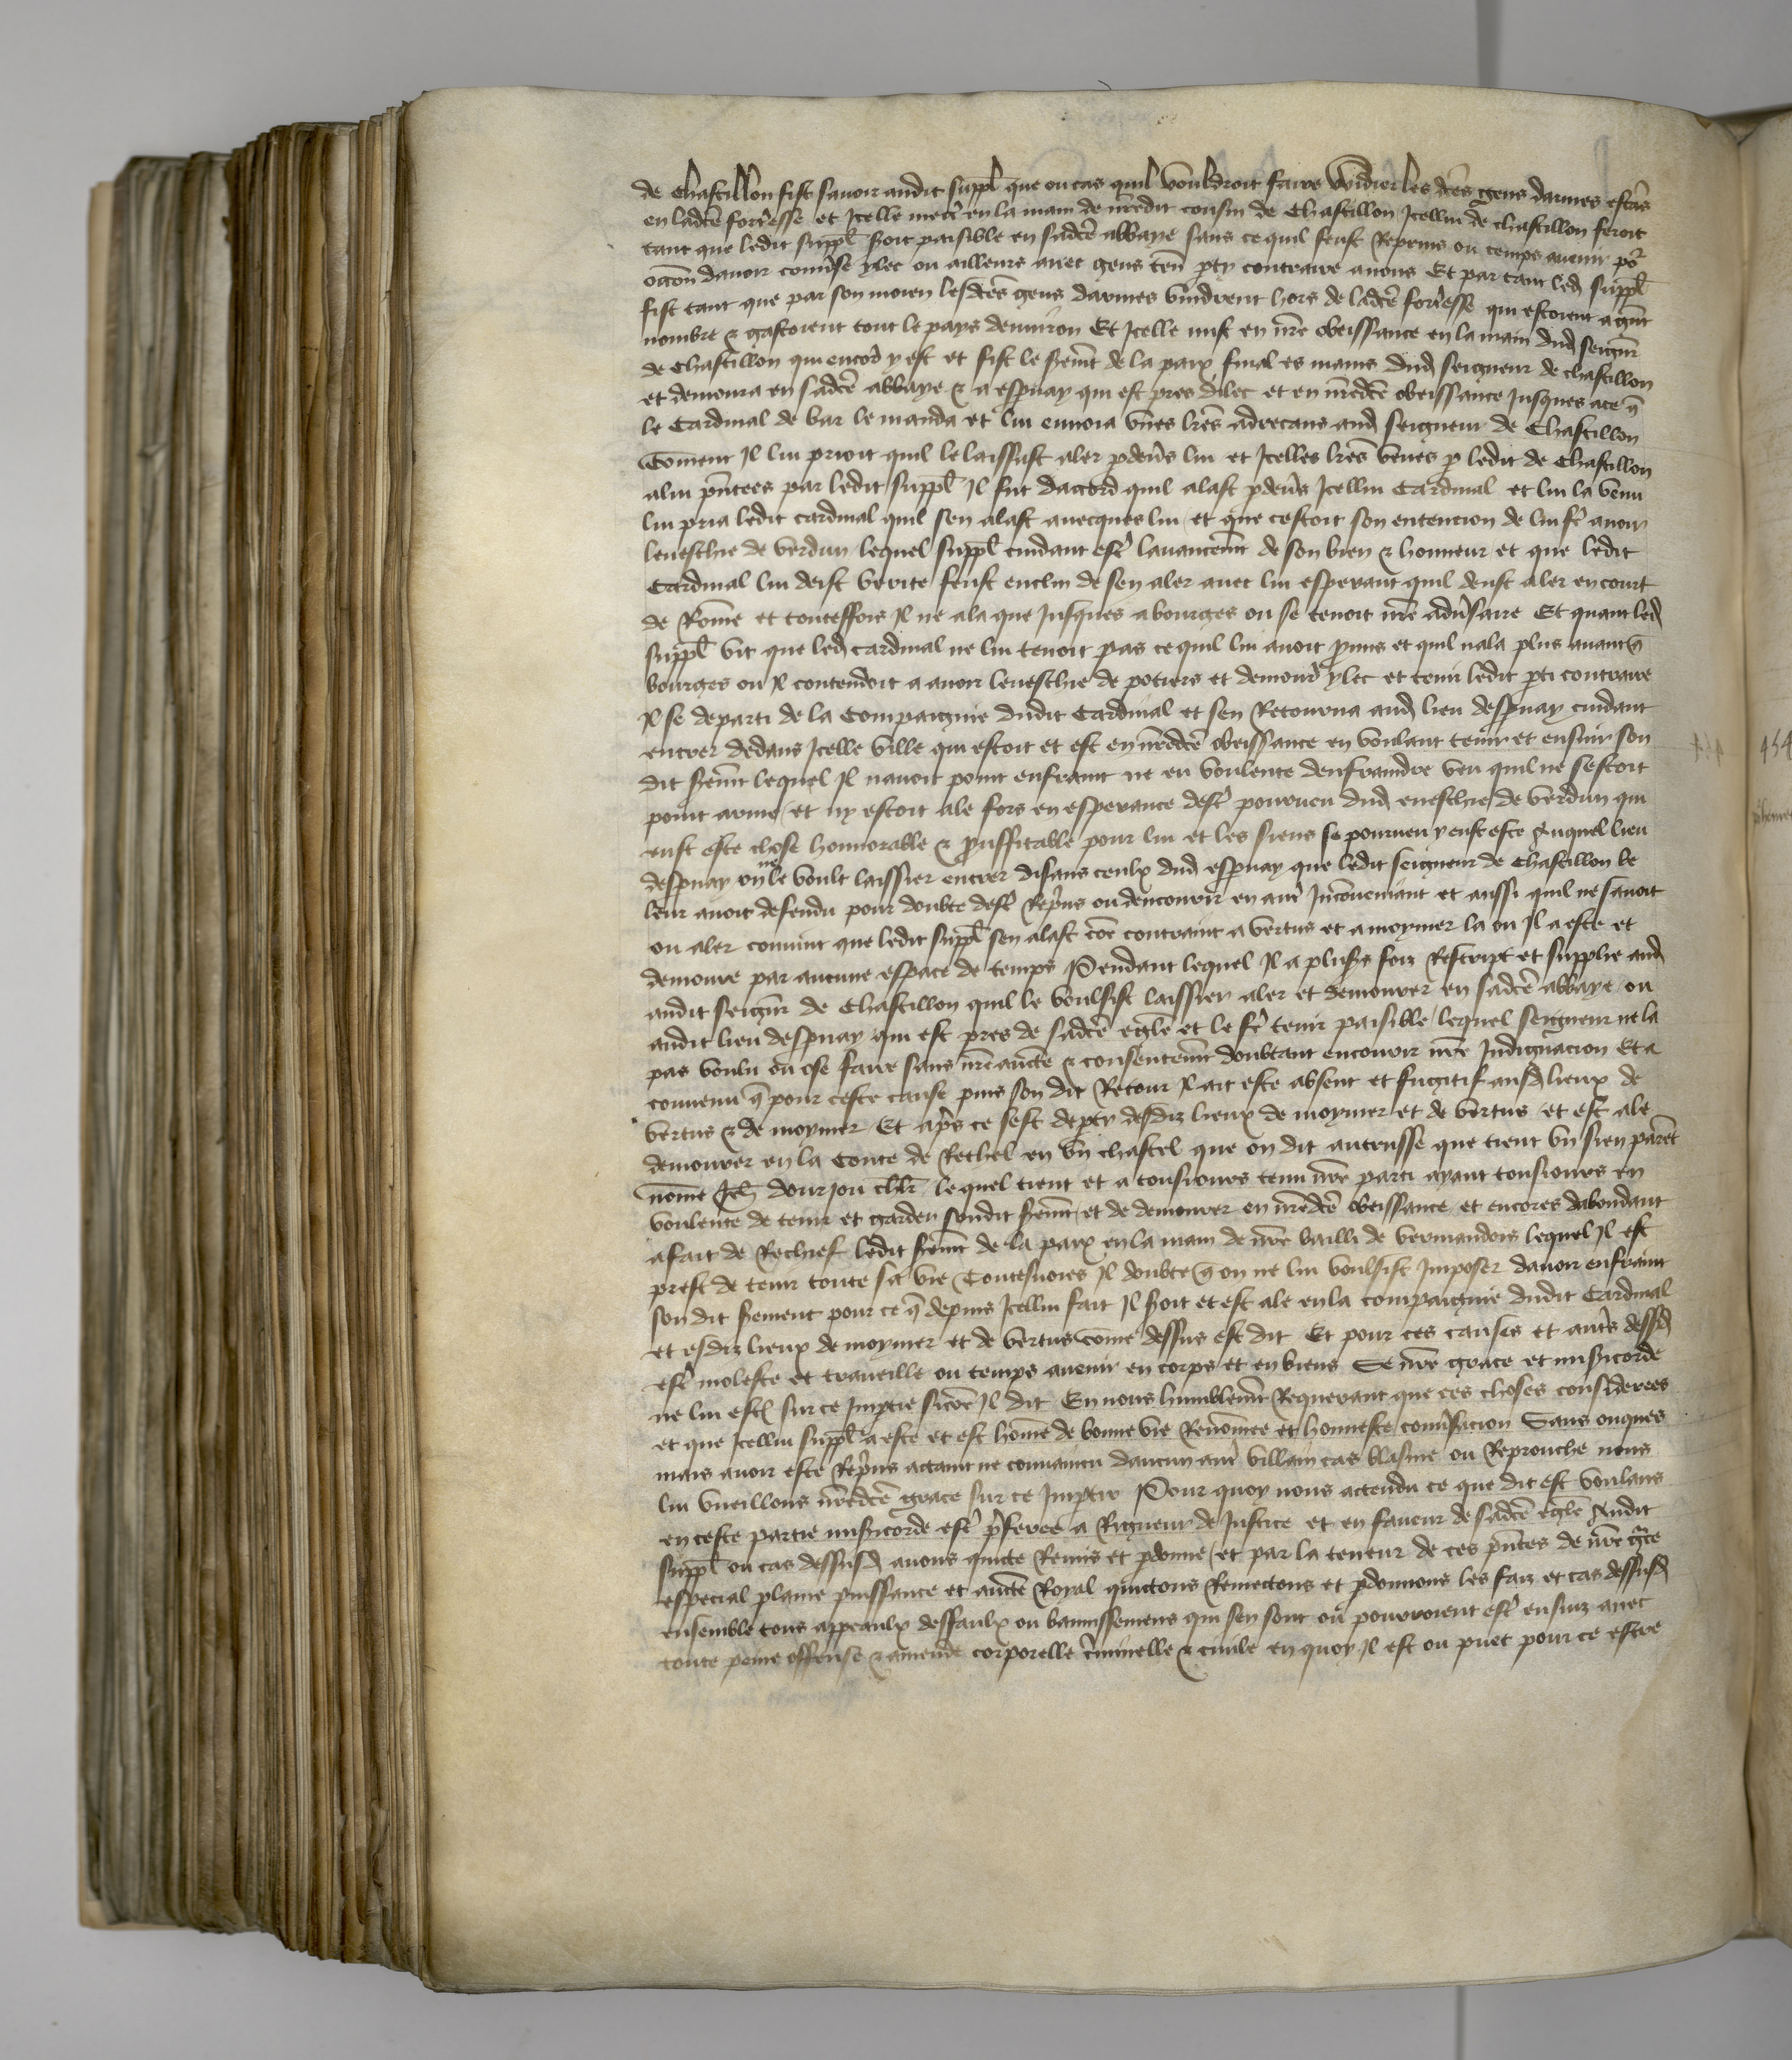 de Chastillon fist savoir audit suppl que ou cas quil vouldroit faire widier les dces gens darmes estans
en ladce forresse et Icelle mectre en la main de nredit cousin de Chastillon Icellui de chastillon feroit
tant que ledit suppl seroit paisible en sadce abbaye sans ce quil feust Reprins ou temps avenir por
occon davoir converse ylec ou ailleurs avec gens ten pty contraire a nous Et par tant led suppl
fist tant que par son moien lesdces gens darmes vindrent hors de ladce forresse qui estoient a gnt
nombre & gastoient tout le pays denviron Et Icelle mist en nre obeissance en la main dud seignr
de Chastillon qui encor y est et fist le seremt de la paix final es mains dud seigneur de chastillon
et demoura en sadce abbaye & a espnay qui est pres dilec et en nredce obeissance Jusques a ce q
le Cardinal de bar le manda et lui envoia unes lres adrecans aud seigneur de Chastillon
Coment Il lui prioit quil le laissast aler pdevs lui et Icelles lres veues p ledit de Chastillon
a lui pntees par ledit suppl Il fut daccord quil alast pdevs Icellui Cardinal et lui la venu
lui pria ledit cardinal quil sen alast avecques lui et que cestoit son entencion de lui fe avoir
leveschie de verdun lequel suppl cuidant estre lavancemt de son bien & honneur et que ledit
Cardinal lui deist verite feust enclin de sen aler avec lui esperant quil deust aler en court
de Rome et toutesfois Il ne ala que Jusques a bourges ou se tenoit nre adversaire Et quant led
suppl vit que led cardinal ne lui tenoit pas ce quil lui avoit pmis et quil nala plus avant q
bourges ou Il contendoit a avoir leveschie de potiers et demourer ylec et tenir ledit pti contraire
Il se departi de la Compaignie dudit Cardinal et sen Retourna aud lieu despnay cuidant
entrer dedans Icelle ville qui estoit et est en nredce obeissance en voulant tenir et ensuir son
dit seremt lequel Il navoit point enfraint ne eu voulente denfraindre veu quil ne sestoit
point arme et ny estoit ale fors en esperance destre pourveu dud eveschie de verdun qui
eust este chose honnorable & prouffitable pour lui et les siens se pourveu y eust este Auquel lieu
despnay on ne le voult laissier entrer disans ceulx dud espnay que ledit seigneur de Chastillon le
leur avoit defendu pour doubte destre Reprins ou dencourir en autre Inconveniant et aussi quil ne savoit
ou aler convint que ledit suppl sen alast coe contraint a vertus et a moymer la ou Il a este et
demoure par aucune espace de temps Pendant lequel Il a plusrs foiz Rescript et supplie aud
audit seignr de Chastillon quil le voulsist laissier aler et demourer en sadce abbaye ou
audit lieu despnay qui est pres de sadce egle et le fe tenir paisible lequel seigneur ne la
pas voulu ou ose faire sans nre aucte & consentemt doubtant encourir nre Indignacion Et a
convenu q pour ceste cause puis son dit Retour Il ait este absent et fugitif ausd lieux de
vertus & de moymer Et aps ce sest depty desdiz lieux de moymer et de vertus et est ale
demourer en la Conte de Rethel en un chastel que on dit autrusse que tient un sien parent
nome Jeh dourjou chlr lequel tient et a tousiours tenu nre parti ayant tousiours eu
voulente de tenir et garder sondit seremt et de demourer en nredce obeissance et encores dabondant
a fait de Rechief ledit seremt de la paix en la main de nre bailli de vermandois lequel Il est
prest de tenir toute sa vie Toutesvoies Il doubte q on ne lui voulsist Imposer davoir enfraint
son dit serement pour ce q depuis Icellui fait Il soit et est ale en la compaignie dudit Cardinal
et esdiz lieux de moymer et de vertus come dessus est dit Et pour ces causes et autres dessd
estre moleste et travaille ou temps avenir en corps et en biens Se nre grace et misericorde
ne lui est sur ce Imptie sicoe Il dit En nous humblemt Requerant que ces choses considerees
et que Icellui suppl a este et est home de bonne vie Renomee et honneste conversacion Sans onques
mais avoir este Reprins actaint ne convaincu daucun autre villain cas blasme ou Reprouche nous
lui vueillons nredce grace sur ce Imptir Pour quoy nous actendu ce que dit est voulans
en ceste partie misericorde estre pferee a Rigueur de Justice et en faveur de sadce egle Audit
suppl ou cas dessusd avons quicte Remis et pdonne et par la teneur de ces pntes de nre gce
especial plaine puissance et aucte Royal quictons Remectons et pdonnons les faiz et cas dessusd
ensemble tous appeaulx deffaulx ou bannissemens qui sen sont ou pourroient estre ensuiz avec
toute peine offense & amende corporelle criminelle & civile en quoy Il est ou puet pour ce estre